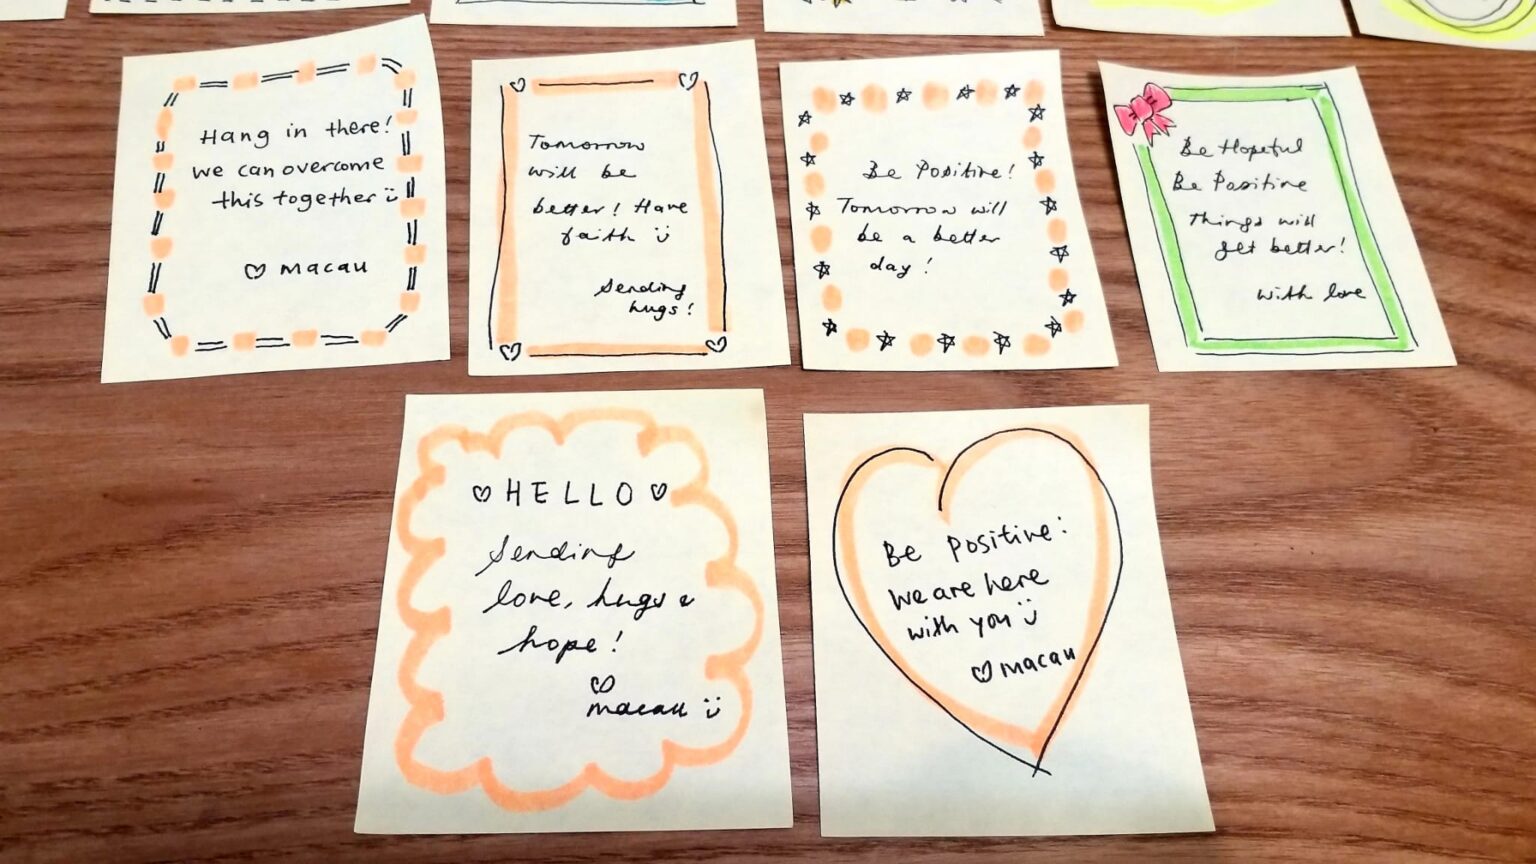 Hang in there!
we can overcome
this together
macau
Tomorrow
will be
better! Have
faith
Sending
hugs!
Be Positive!
Tomorrow will
be a better
day!
Be Hopeful
Be Positive
Things will
get better!
with love
HELLO
Sending
love, hugs &
hope!
macau
Be Positive:
we are here
with you
macau